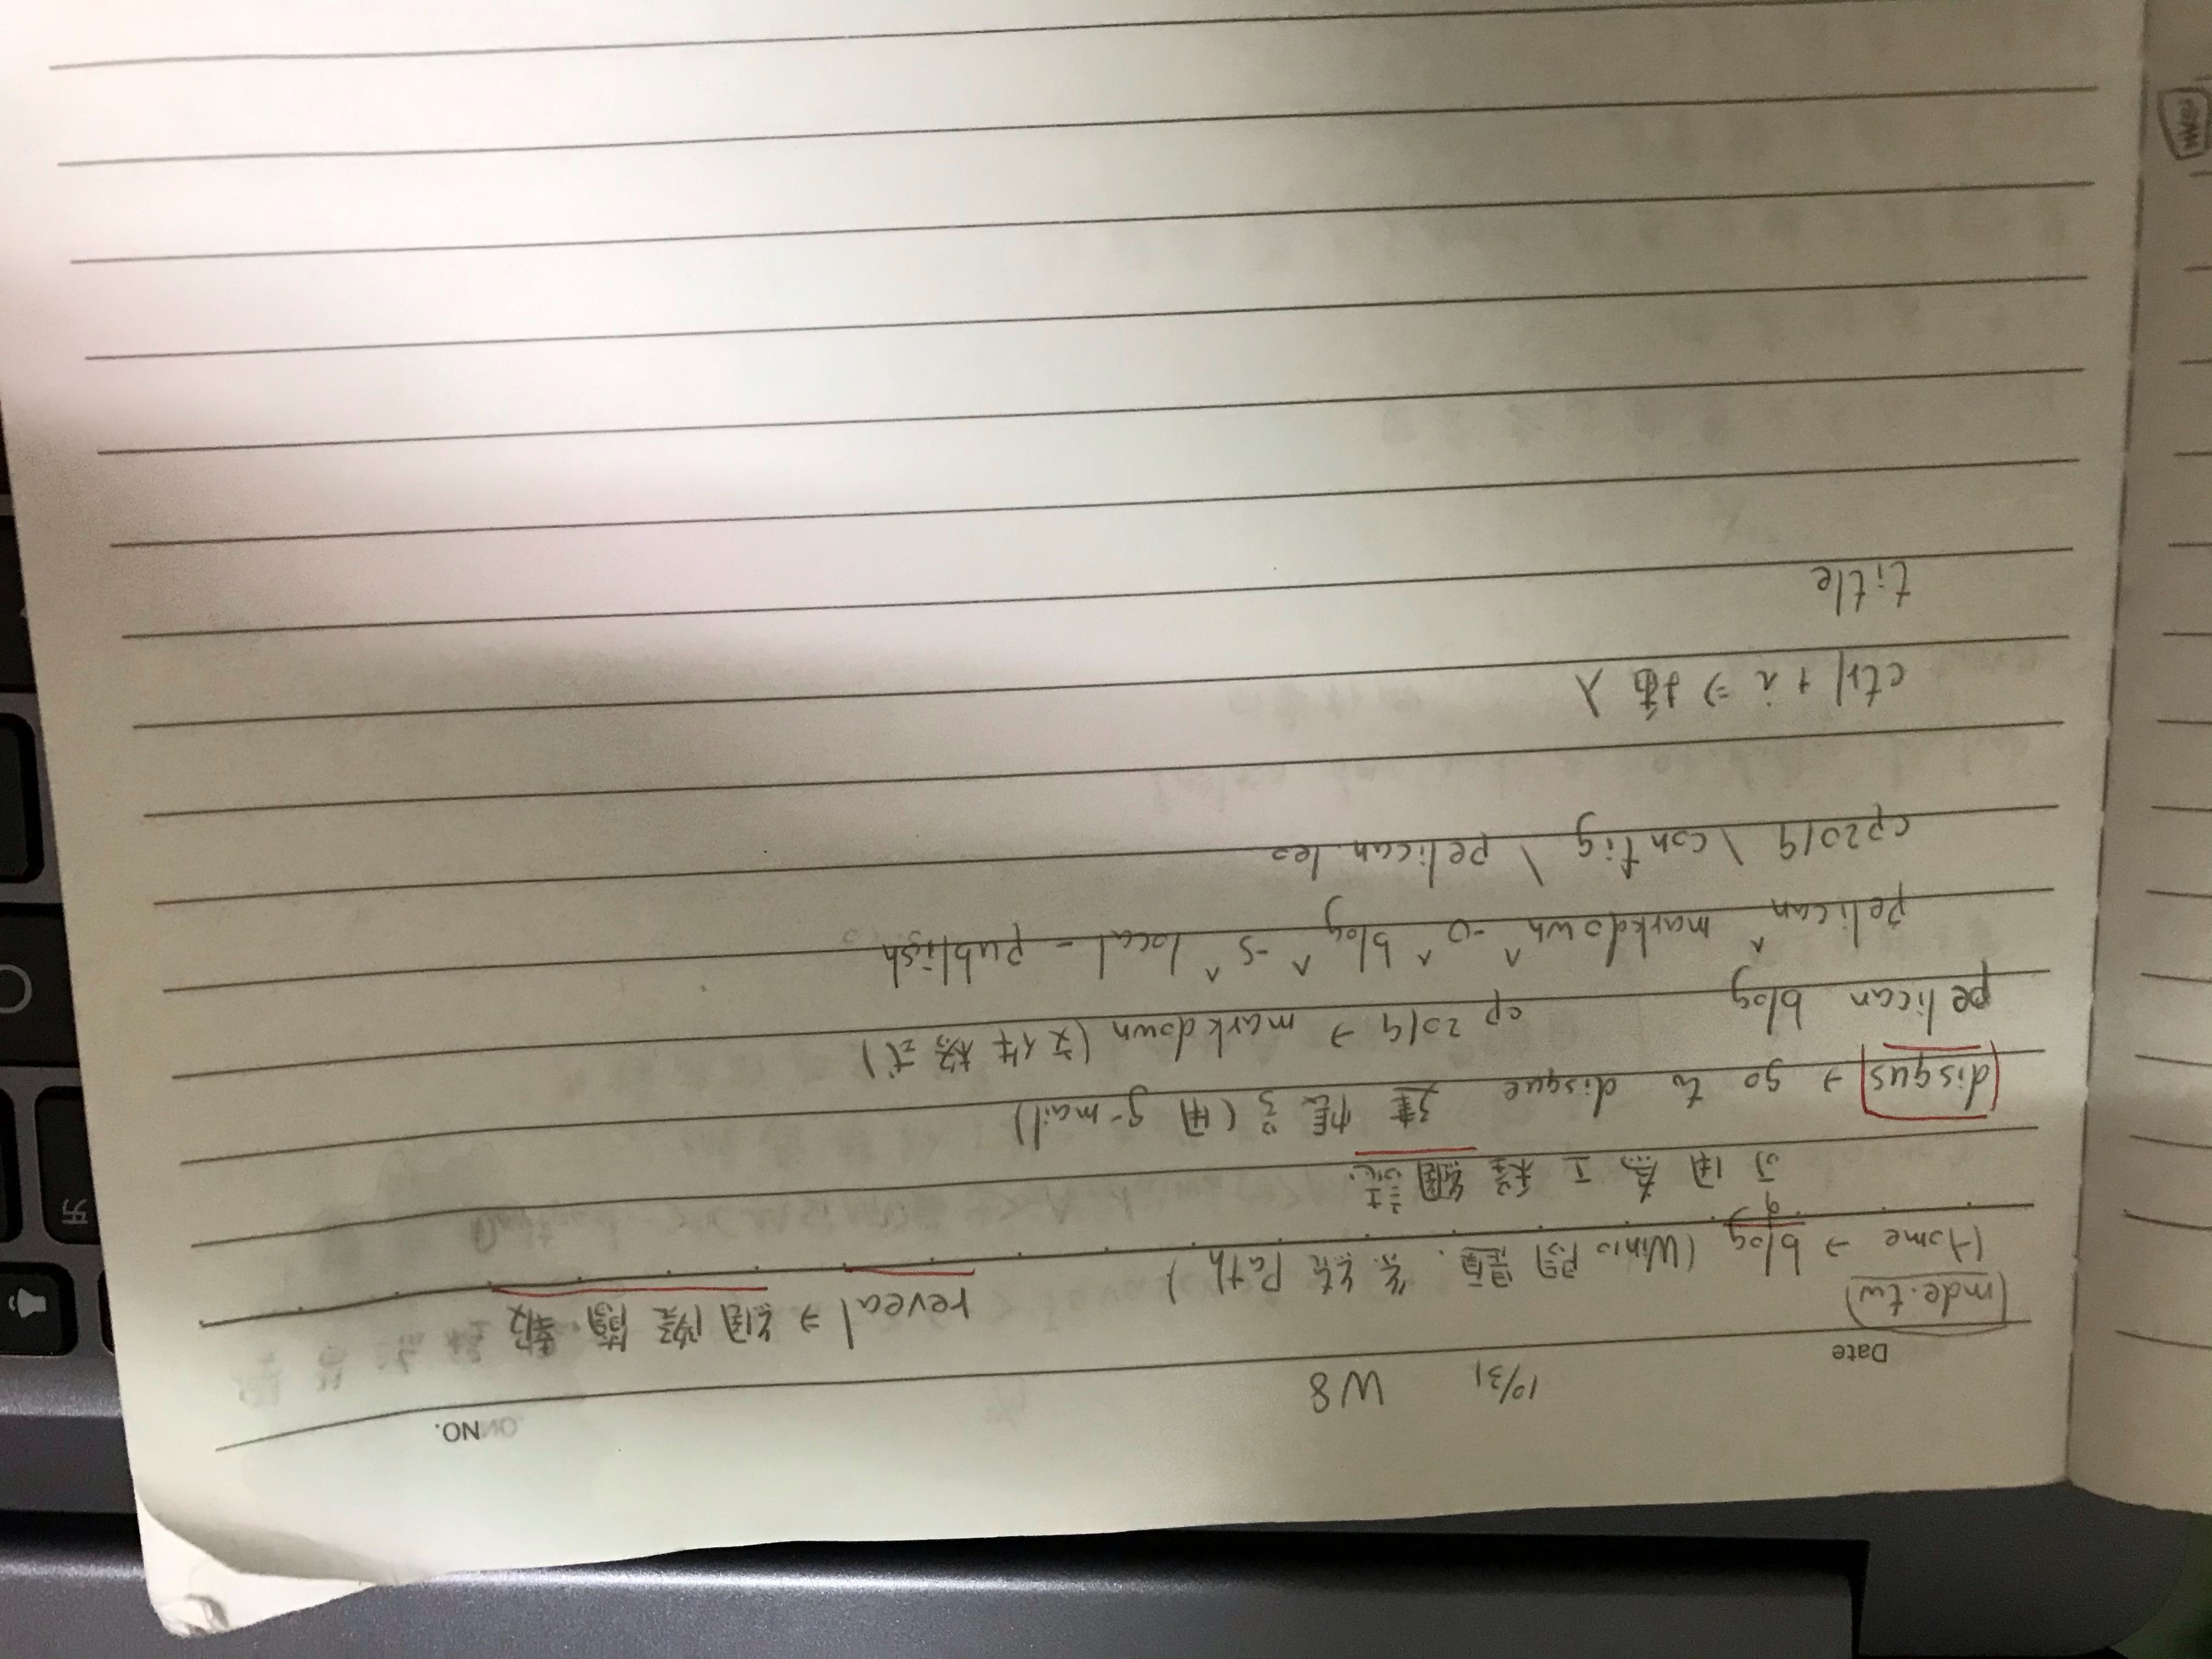 NO.
Date 10/31 W8
mde.tw
Home → blog (Win10 問題、系統 Path) reveal ⇒ 網際簡報
可用為工程網誌
disqus → go to disque 建帳号 (用 g-mail)
pelican blog cp 2019 → markdown (文件格式)
pelican ^ markdown ^ -o ^ blog ^ -s ^ local - publish
cp2019 \ config \ pelican.leo
ctrl + i ⇒ 插入
title